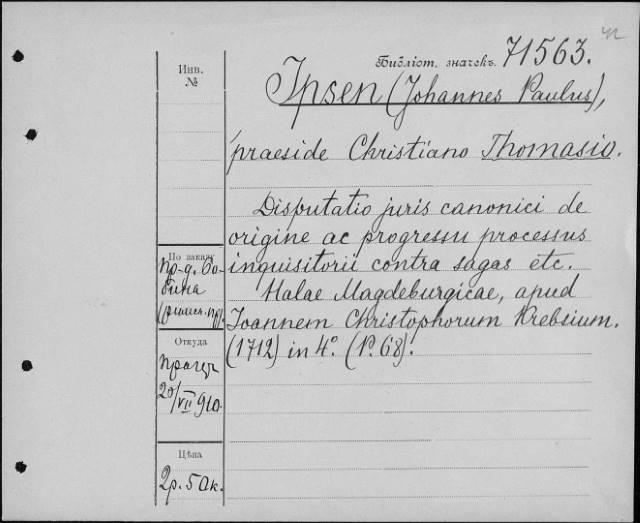 Библіот. значекъ. 71563.
Инв.
№
Ipsen (Johannes Paulus),
praeside Christiano Thomasio.
Disputatio juris canonici de
origine ac progressu processus
inquisitorii contra sagas etc.
Halae Magdeburgicae, apud
Joannem Christophorum Krebsium.
(1712) in 4º. (P. 68).
По заказу
пр-д. Бо-
бина
Откуда
20/VII 910.
Цѣна
2р. 50к.